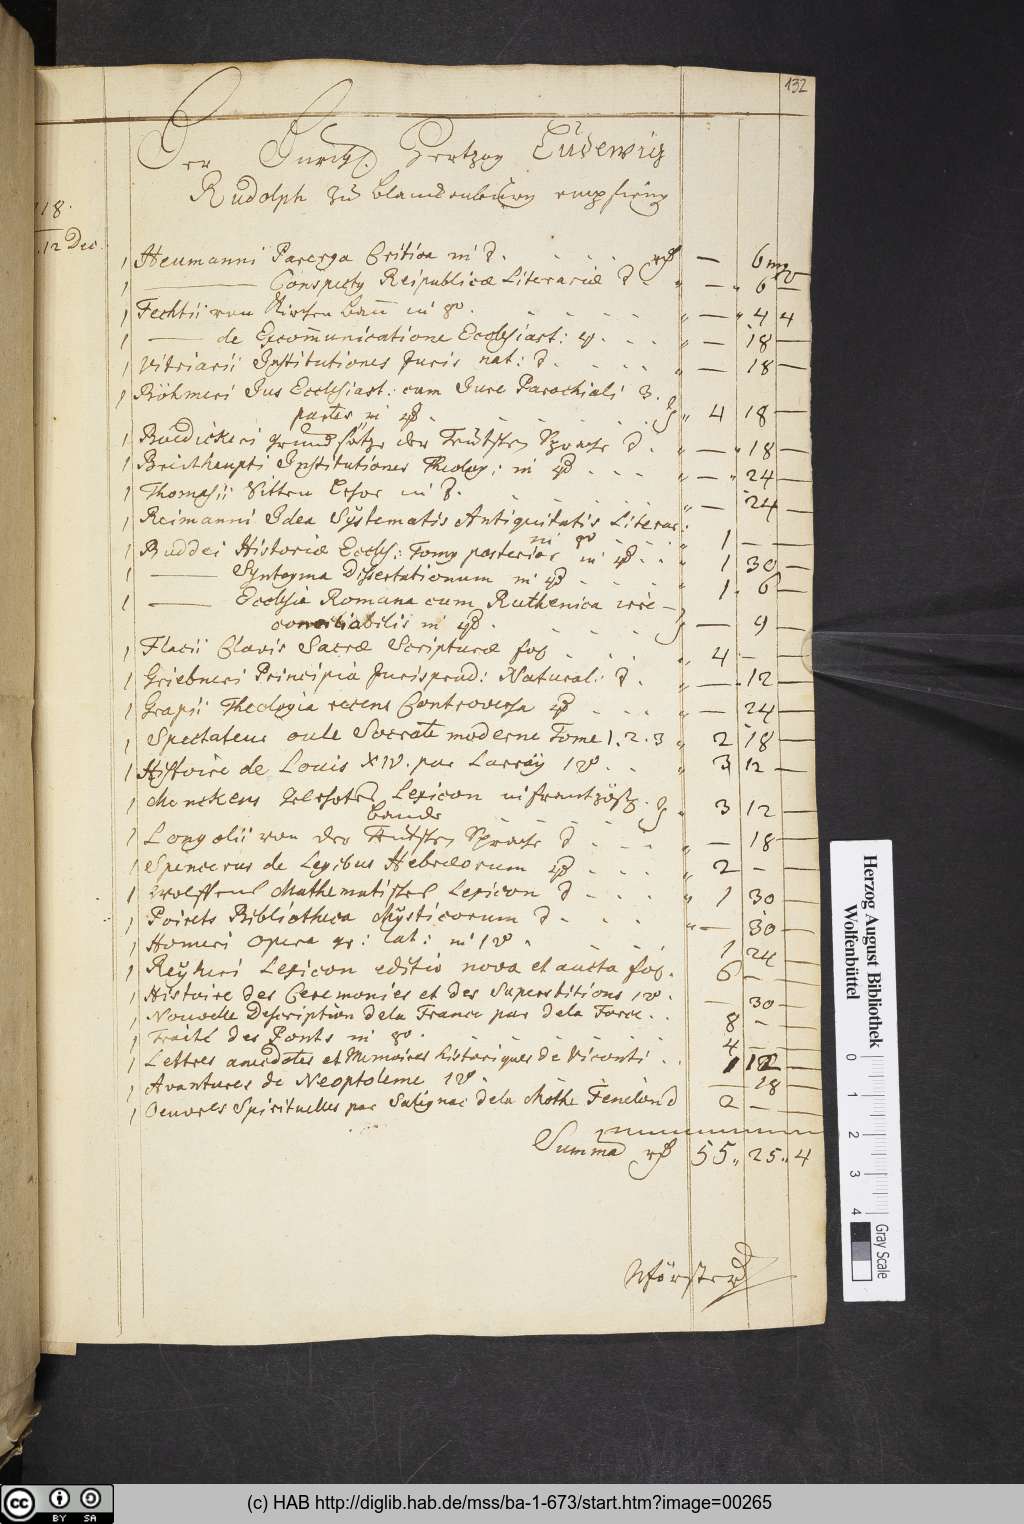 132
Der Durchl. Hertzog Ludewig
Rudolph zu Blanckenburg empfieng
718.
12 Dec.
1 Heumanni Parerga Critica in 8. rthl — 6 mg
1 — Conspectus Reipublicæ Literariæ 8 — 6 —
1 Fechtii von Kirchen Bann in 8vo. — 4 4
1 — de Excommunicatione Ecclesiast: 4. — 18 —
1 Vitriarii Institutiones Juris nat: 8. — 18 —
1 Böhmeri Jus Ecclesiast: cum Jure Parochiali 3.
partes in 4to. 4 18 —
1 Bödickeri grundsätze der Teutschen Sprache 8. — 18 —
1 Breithaupti Institutiones Theolog: in 4to — 24 —
1 Thomasii Sitten Lehre in 8. — 24 —
1 Reimanni Idea Systematis Antiquitatis Literar:
in 8vo 1 — —
1 Buddei Historiæ Eccles: Tomus posterior in 4to 1 30 —
1 — Syntagma Dissertationum in 4to 1 6 —
1 — Ecclesia Romana cum Ruthenica irre-
conciliabilis in 4to. — 9 —
1 Flacii Clavis Sacræ Scripturæ fol 4 — —
1 Griebneri Principia Jurisprud: Natural: 8. — 12 —
1 Grapii Theologia recens Controversa 4to — 24 —
1 Spectateur oule Socrate moderne Tome 1. 2. 3 2 18 —
1 Histoire de Louis XIV. par Larrey 1 V. 3 12 —
1 Menckens Gelehrten Lexicon in frantzösch.
bande 3 12 —
1 Longolii von der Teutschen Sprache 8 — 18 —
1 Spencerus de Legibus Hebræorum 4to 2 — —
1 Wolffens Mathematisches Lexicon 8 1 30 —
1 Poirets Bibliotheca Mysticorum 8 — 30 —
1 Homeri opera gr: lat: in 1 V. 1 24 —
1 Reyheri Lexicon editio nova et aucta fol. 6 — —
1 Histoire des Ceremonies et des Superstitions 1 V. — 30 —
1 Nouvelle Description dela France par dela Force. 8 — —
1 Traité des Ponts in 8vo. 4 — —
1 Lettres anecdotes et Memoires historiques de Visconti 1 12 —
1 Avantures de Neoptoleme 1 V. — 18 —
1 Oeuvres Spirituelles par Salignac dela Mothe Fenelon 8 2 — —
Summa rthl 55„ 25„ 4
Herzog August Bibliothek
Wolfenbüttel
0 1 2 3 4
Gray Scale
(c) HAB http://diglib.hab.de/mss/ba-1-673/start.htm?image=00265
cc BY SA